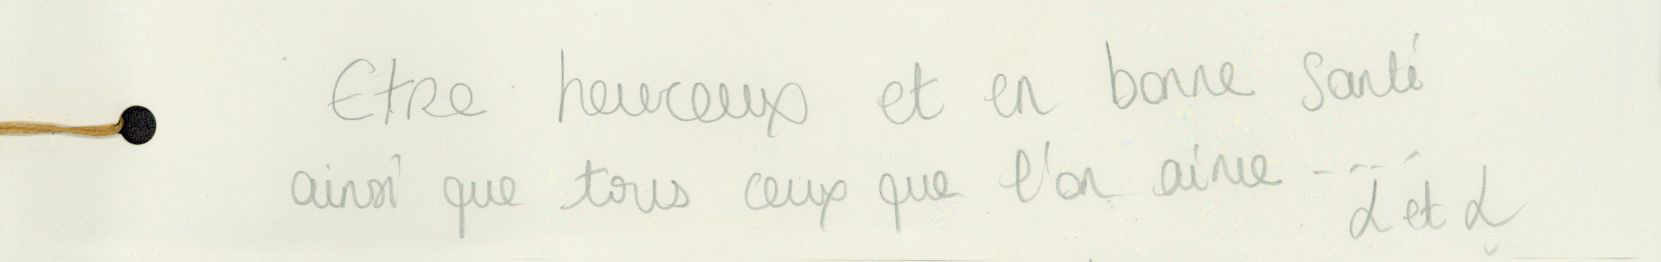 Etre heureux et en bonne santé
ainsi que tous ceux que l'on aime ----
L et L